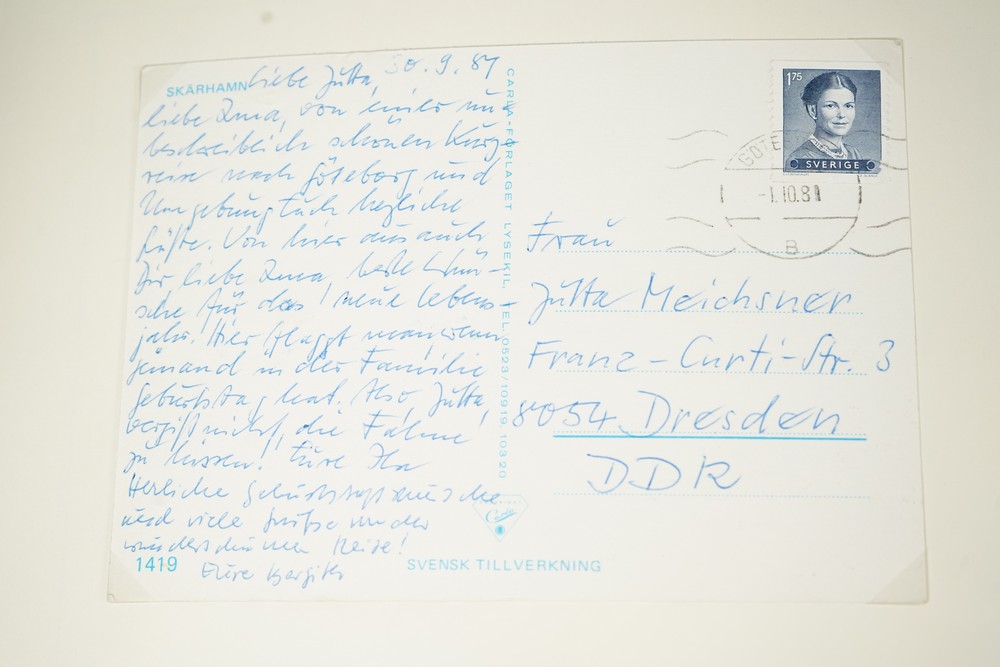 SKÄRHAMN
Liebe Jutta, 30.9.81
liebe Oma, von einer un-
beschreiblich schönen Kurz-
reise nach Göteborg und
Umgebung Euch herzliche
Grüße. Von hier aus auch
Dir, liebe Oma, beste Wün-
sche für das neue Lebens-
jahr. Hier flaggt man, wenn
jemand in der Familie
Geburtstag hat. Also, Jutta,
vergiß nicht, die Fahne
zu hissen! Eure
Herzliche Geburtstagswünsche
und viele Grüße von der
wunderschönen Reise!
Eure
1419
CARLA-FÖRLAGET LYSEKIL, TEL. 0523/10919, 103 20
SVENSK TILLVERKNING
175
SVERIGE
GÖTE
-1.10.81
B
Frau
Jutta Meichsner
Franz-Curti-Str. 3
8054 Dresden
DDR